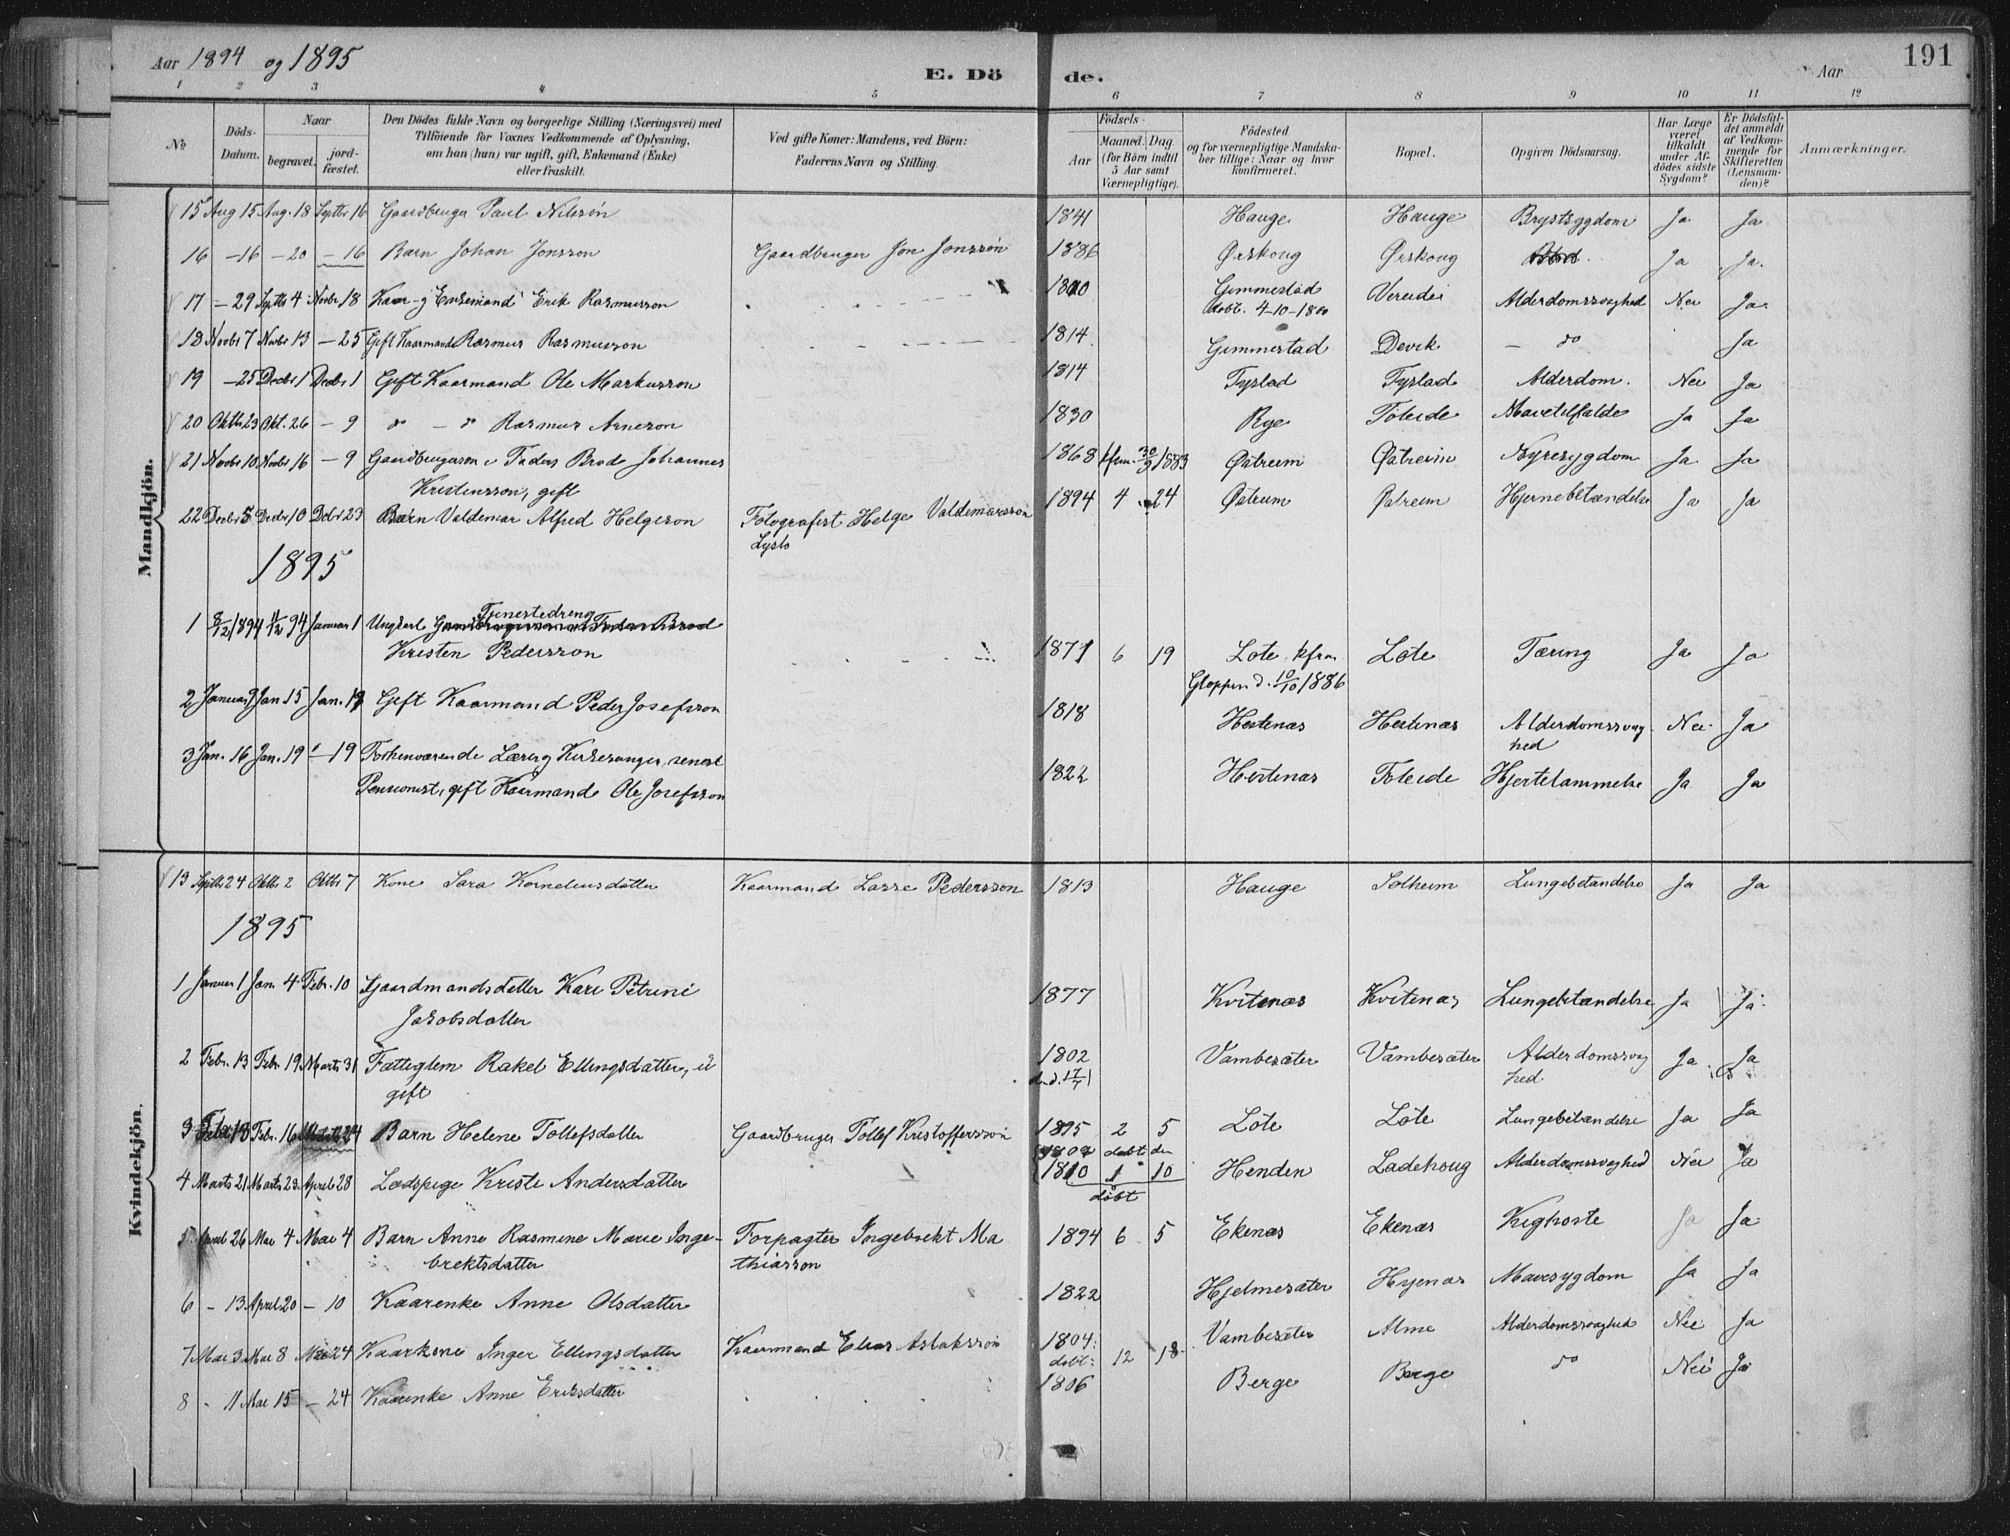 Aar 1894 og 1895
E. Dö de.
Aar
191
1 2 3 4 5 6 7 8 9 10 11 12
№
Döds-Datum.
Naar
begravet.
jord-fæstet.
Den Dödes fulde Navn og borgerlige Stilling (Næringsvei) med
Tilföiende for Voxnes Vedkommende af Oplysning,
om han (hun) var ugift, gift, Enkemand (Enke)
eller fraskilt.
Ved gifte Koner: Mandens, ved Börn:
Faderens Navn og Stilling.
Födsels-
Aar
Maaned. Dag
(for Börn indtil
5 Aar samt
Værnepligtige).
Födested
og for værnepligtige Mandska-
ber tillige: Naar og hvor
konfirmeret.
Bopæl.
Opgiven Dödsaarsag.
Har Læge
været
tilkaldt
under Af-
dödes sidste
Sygdom?
Er Dödsfal-
det anmeldt
af Vedkom-
mende for
Skifteretten
(Lensman-
den)?
Anmærkninger.
Mandkjön.
15 Aug 15 Aug. 18 Septbr 16 Gaardbruger Paul Nilssön 1841 Hauge Hauge Brystsygdom Ja Ja
16 -16 -20 -16 Barn Johan Jonsson Gaardbruger Jon Jonssön 1886 Ørskoug Ørskoug Ja Ja.
17 -29 Septbr 4 Novbr 18 Kaar- og Enkemand Erik Rasmusson 1800 Gimmestad Vereide Alderdomssvaghed Nei Ja.
döbt. 4-10-1800
18 Novbr 7 Novbr 13 -25 Gift Kaarmand Rasmus Rasmusson 1814 Gimmestad Devik - do Ja
19 -25 Decbr 1 Decbr 1 Gift Kaarmand Ole Markusson 1814 Tystad Tystad Alderdom. Nei Ja
20 Oktbr 23 Okt. 26 -9 do - do Rasmus Arneson 1830 Rye Töleide Mavetilfælde Ja Ja
21 Novbr 10 Novbr 16 -9 Gaardbrugersön i Faders Brød Johannes 1868 kfrm. 30/9 1883 Østreim Østreim Nyresygdom Ja Ja
Kristensson, gift
22 Decbr 5 Decbr 10 Decbr 23 Barn Valdemar Alfred Helgeson Fotografist Helge Valdemarssön 1894 4 24 Østreim Østreim Hjernebetændelse Ja Ja
1895
1 8/12 1894 11/12 94 Januar 1 Ungkarl Tjenestedreng
Kristen Pedersson 1871 6 19 Löte kfrm Löte Tæring Ja Ja
Gloppen d. 10/10 1886
2 Januar 9 Jan 15 Jan. 19 Gift Kaarmand Peder Josefsson 1818 Hestenæs Hestenæs Alderdomssvag Nei Ja
hed
3 Jan. 16 Jan. 19 -19 Forhenværende Lærer og Kirkesanger, senest 1822 Hestenæs Töleide Hjertelammelse Ja Ja
Pensionist, gift Kaarmand Ole Josefsson
Kvindekjön.
13 Septbr 24 Oktbr 2 Oktbr 7 Kone Sara Korneliusdatter Kaarmand Lasse Pedersson 1813 Hauge Solheim Lungebetændelse Ja Ja
1895
1 Januar 1 Jan. 4 Febr. 10 Gaardmandsdatter Kari Petrine 1877 Kvitenæs Kvitenæs Lungebetændelse Ja Ja.
Jakobsdatter
2 Febr. 13 Febr. 19 Marts 31 Fattiglem Rakel Ellingsdatter, u 1802 Vambesæter Vambesæter Alderdomssvag Ja. Ja
gift hed
3 Febr 13 Febr. 16 24 Barn Helene Tollefsdatter Gaardbruger Tollef Kristoffersson 1895 2 5 Löte Löte Lungebetændelse Ja Ja
döbt den
4 Marts 21 Marts 29 April 28 Lædspige Kristi Andersdatter 1810 1 10 Henden Ladehoug Alderdomssvaghed Nei Ja
döbt
5 April 26 Mai 4 Mai 4 Barn Anne Rasmine Marie Inge- Forpagter Ingebrekt Ma 1894 6 5 Ekenæs Ekenæs Kighoste Ja Ja
brektsdatter thiasson
6 - 13 April 20 -10 Kaarenke Anne Olsdatter 1822 Hjelmesæter Hyenæs Mavesygdom Ja Ja
7 Mai 3 Mai 8 Mai 24 Kaarkone Inger Ellingsdatter Kaarmand Elias Aslaksson 1804 Vambesæter Alme Alderdomssvaghed Nei Ja
döbt: 12 18
8 - 11 Mai 15 -24 Kaarenke Anne Eriksdatter 1806 Berge Berge do Nei Ja